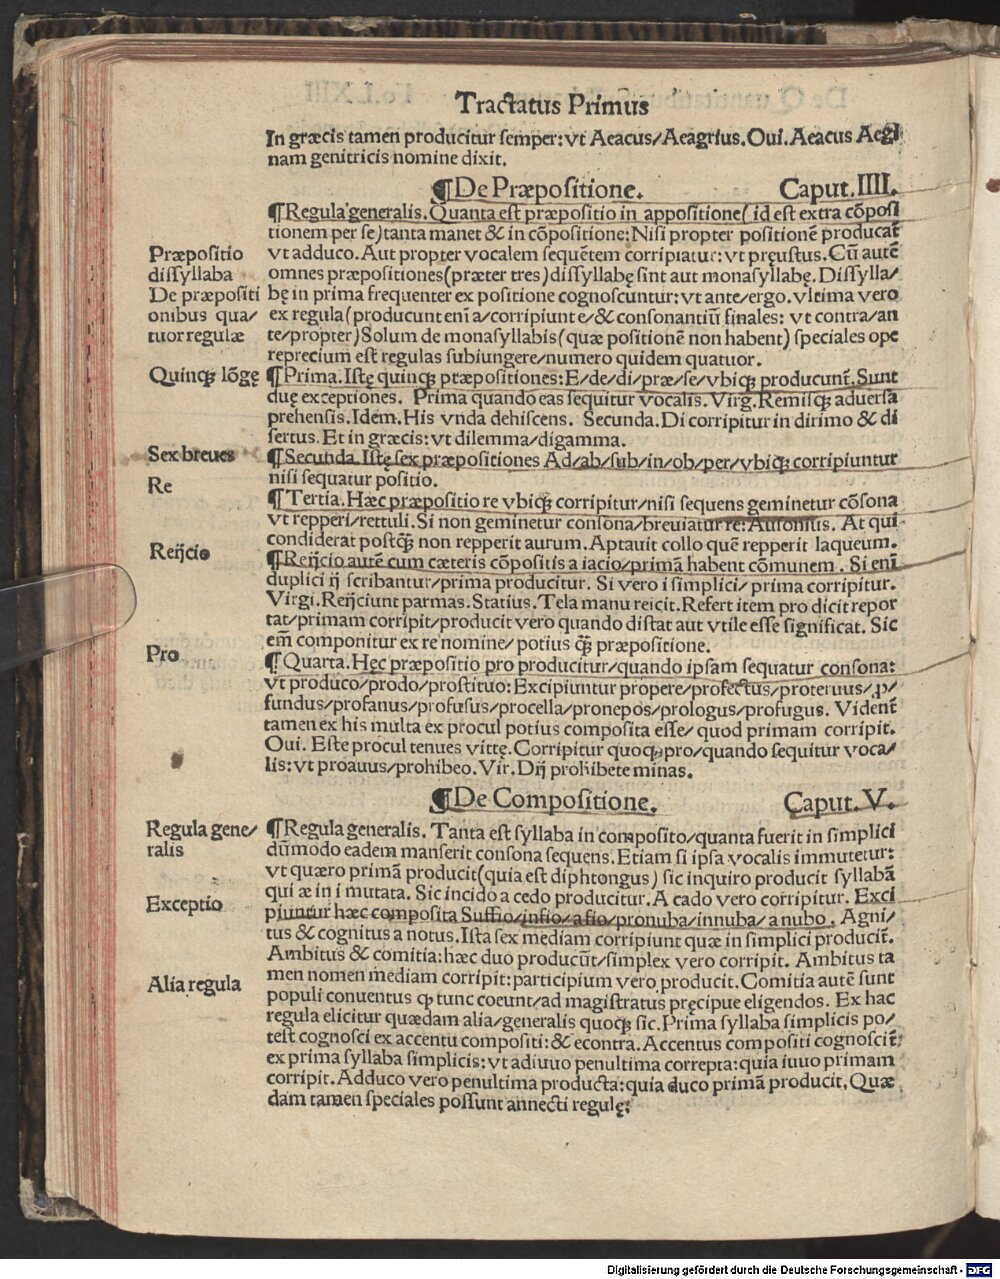 Tractatus Primus
In græcis tamen producitur semper: vt Aeacus/Aeagrius. Oui. Aeacus Aegi
nam genitricis nomine dixit.
¶De Præpositione. Caput. IIII.
¶Regula generalis. Quanta est præpositio in appositione (id est extra cõposi
tionem per se) tanta manet & in cõpositione: Nisi propter positionẽ producat̃
Præpositio
vt adduco. Aut propter vocalem sequẽtem corripiatur: vt pręustus. Cũ autẽ
dissyllaba
omnes præpositiones (præter tres) dissyllabę sint aut monasyllabę. Dissylla/
De præpositi
bę in prima frequenter ex positione cognoscuntur: vt ante/ergo. vltima vero
onibus qua/
ex regula (producunt enĩ a/corripiunt e/& consonantiũ finales: vt contra/an
tuor regulæ
te/propter) Solum de monasyllabis (quæ positionẽ non habent) speciales ope
reprecium est regulas subiungere/numero quidem quatuor.
Quinqꝫ lõgę
¶Prima. Istę quinqꝫ præpositiones: E/de/di/præ/se/vbiqꝫ producunt̃. Sunt
duę exceptiones. Prima quando eas sequitur vocalis. Virg. Remisqꝫ aduersa
prehensis. Idem. His vnda dehiscens. Secunda. Di corripitur in dirimo & di
sertus. Et in græcis: vt dilemma/digamma.
Sex breues
¶Secunda. Istę sex præpositiones Ad/ab/sub/in/ob/per/vbiqꝫ corripiuntur
nisi sequatur positio.
Re
¶Tertia. Hæc præpositio re vbiqꝫ corripitur/nisi sequens geminetur cõsona
vt repperi/rettuli. Si non geminetur consona/breuiatur re: Ausonius. At qui
condiderat postqꝫ̃ non repperit aurum. Aptauit collo quẽ repperit laqueum.
Reijcio
¶Reijcio autẽ cum cæteris cõpositis a iacio/primã habent cõmunem. Si enĩ
duplici ij scribantur/prima producitur. Si vero i simplici/prima corripitur.
Virgi. Reijciunt parmas. Statius. Tela manu reicit. Refert item pro dicit repor
tat/primam corripit/producit vero quando distat aut vtile esse significat. Sic
em̃ componitur ex re nomine/potius qꝫ̃ præpositione.
Pro
¶Quarta. Hęc præpositio pro producitur/quando ipsam sequatur consona:
vt produco/prodo/prostituo: Excipiuntur propere/profectus/proteruus/ꝓ/
fundus/profanus/profusus/procella/pronepos/prologus/profugus. Vident̃
tamen ex his multa ex procul potius composita esse/ quod primam corripit.
Oui. Este procul tenues vittę. Corripitur quoqꝫ pro/quando sequitur voca/
lis: vt proauus/prohibeo. Vir. Dij prohibete minas.
¶De Compositione. Caput. V.
Regula gene/
¶Regula generalis. Tanta est syllaba in composito/quanta fuerit in simplici
ralis
dũmodo eadem manserit consona sequens. Etiam si ipsa vocalis immutetur:
vt quæro primã producit (quia est diphtongus) sic inquiro producit syllabã
qui æ in i mutata. Sic incido a cedo producitur. A cado vero corripitur. Exci
Exceptio
piuntur hæc composita Suffio/infio/a fio/pronuba/innuba/a nubo. Agni/
tus & cognitus a notus. Ista sex mediam corripiunt quæ in simplici producit̃.
Ambitus & comitia: hæc duo producũt/simplex vero corripit. Ambitus ta
Alia regula
men nomen mediam corripit: participium vero producit. Comitia autẽ sunt
populi conuentus ꝙ tunc coeunt/ad magistratus pręcipue eligendos. Ex hac
regula elicitur quædam alia/generalis quoqꝫ sic. Prima syllaba simplicis po/
test cognosci ex accentu compositi: & econtra. Accentus compositi cognoscit̃
ex prima syllaba simplicis: vt adiuuo penultima correpta: quia iuuo primam
corripit. Adduco vero penultima producta: quia duco primã producit. Quæ
dam tamen speciales possunt annecti regulę:
Digitalisierung gefördert durch die Deutsche Forschungsgemeinschaft - DFG